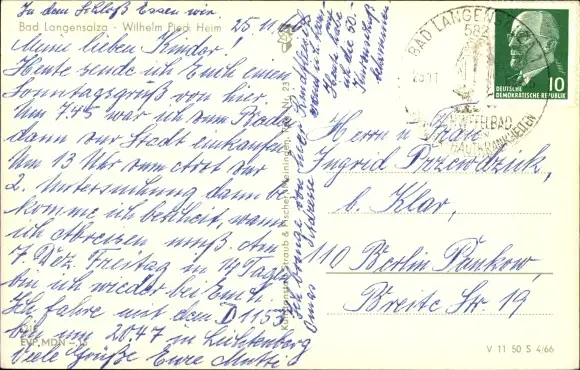 In dem Schloß Essen wir
Bad Langensalza - Wilhelm Pieck Heim
25.11.
Meine lieben Kinder!
Heute sende ich Euch einen
Sonntagsgruß von hier.
Um 7.45 war ich zum Baden
dann zur Stadt einkaufen
Um 13 Uhr zum Arzt zur
2. Untersuchung dann be
komme ich bescheid, wann
ich Abreisen muß. Am
7. Dez. Freitag in 14 Tagen
bin ich wieder bei Euch.
Ich fahre mit dem D 1153
bin um 20.47 in Lichtenberg
Viele Grüße Eure Mutti
EVP MDN
Straub & Fischer Meiningen
Heute habe
ich die 50-
BAD LANGENSALZA
582
SCHWEFELBAD
HAUTKRANKHEITEN
DEUTSCHE
DEMOKRATISCHE REPUBLIK
10
Herrn u. Frau
Ingrid Przewdzink,
b. Klar,
110 Berlin Pankow,
Breite Str. 19
V 11 50 S 4/66